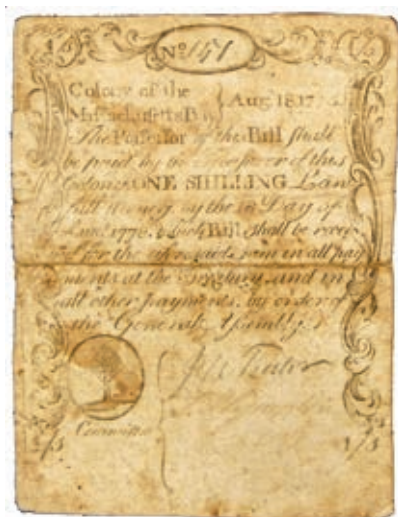 1/s No 151 1/s
Colony of the
Massachusetts Bay } Aug. 18. 177
The Possessor of this Bill shall
be paid by the Treasurer of this
Colony ONE SHILLING Law
full money by the Day of
1778. which Bill shall be receiv
for the aforesaid sum in all pay
ments at the Treasury and in
all other payments by order of
the General Assembly.
Committee
1/s 1/s